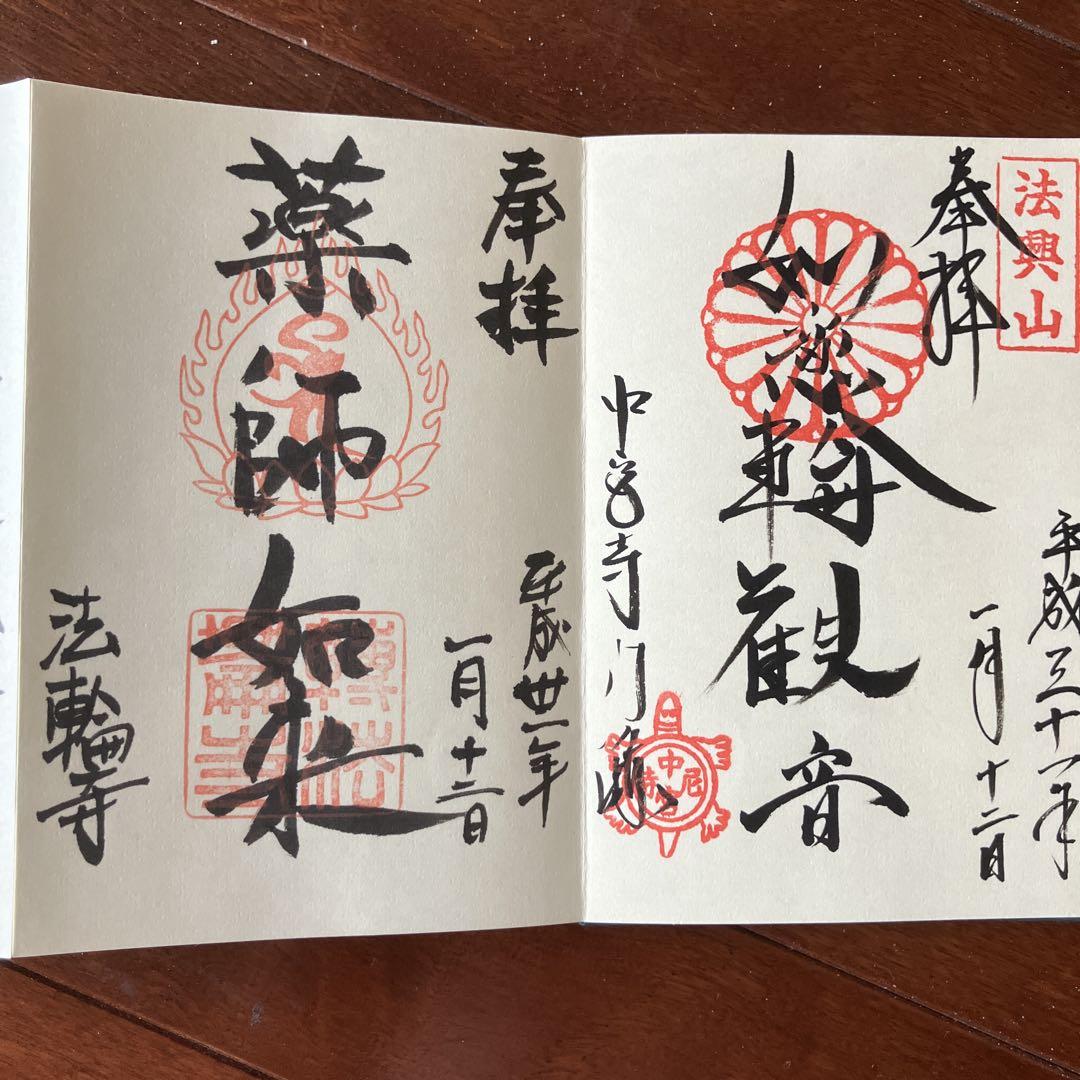 法興山
奉拝
平成三十一年
一月十二日
如意輪観音
中宮寺門跡
奉拝
平成卅一年
一月十二日
薬師如来
法輪寺